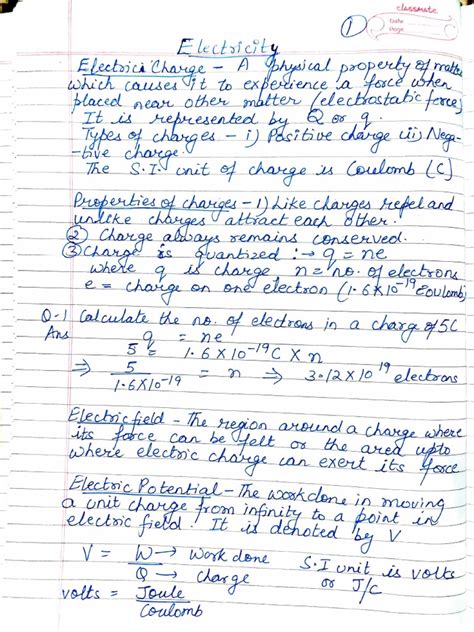 classmate
Date
Page
①
Electricity
Electric Charge - A physical property of matter
which causes it to experience a force when
placed near other matter (electrostatic force)
It is represented by Q or q.
Types of charges - i) Positive charge ii) Nega-
-tive charge.
The S.I unit of charge is Coulomb (C)
Properties of charges - 1) Like charges repel and
unlike charges attract each other.
② Charge always remains conserved.
③ Charge is quantized :→ q = ne
where q is charge, n = no. of electrons
e = charge on one electron (1.6×10⁻¹⁹ Coulomb)
Q-1 Calculate the no. of electrons in a charg of 5C
Ans q = ne
5 = 1.6×10⁻¹⁹C × n
⇒ 5/1.6×10⁻¹⁹ = n ⇒ 3.12×10¹⁹ electrons
Electric field - The region around a charge where
its force can be felt or the area upto
where electric charge can exert its force
Electric Potential - The workdone in moving
a unit charge from infinity to a point in
electric field. It is denoted by V
V = W → Work done S.I unit is volts
Q → Charge or J/C
volts = Joule
Coulomb